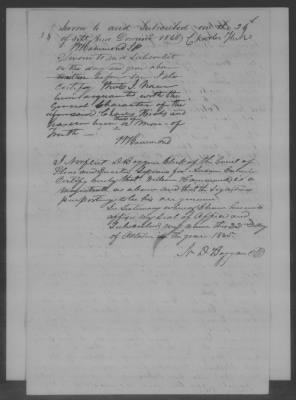 Sworn to and Subscribed on the 24th
of
W Hammond JP
Sworn to and Subscribed
on the day and year above
written before me I also
Certify that I have
been acquainted with the
General Character of the
and
have been a man of
truth
W Hammond
I Norfleet D Boggan Clerk of the Court of
Pleas and Quarter Sessions for Anson County
Certify hereby that William Hammond is a
magistrate as above and that the signature
purporting to be his are genuine
In testimony whereof I have hereunto
affix my Seal of Office and
Subscribed my name this 22d day
of October in the year 184
N D Boggan Clk